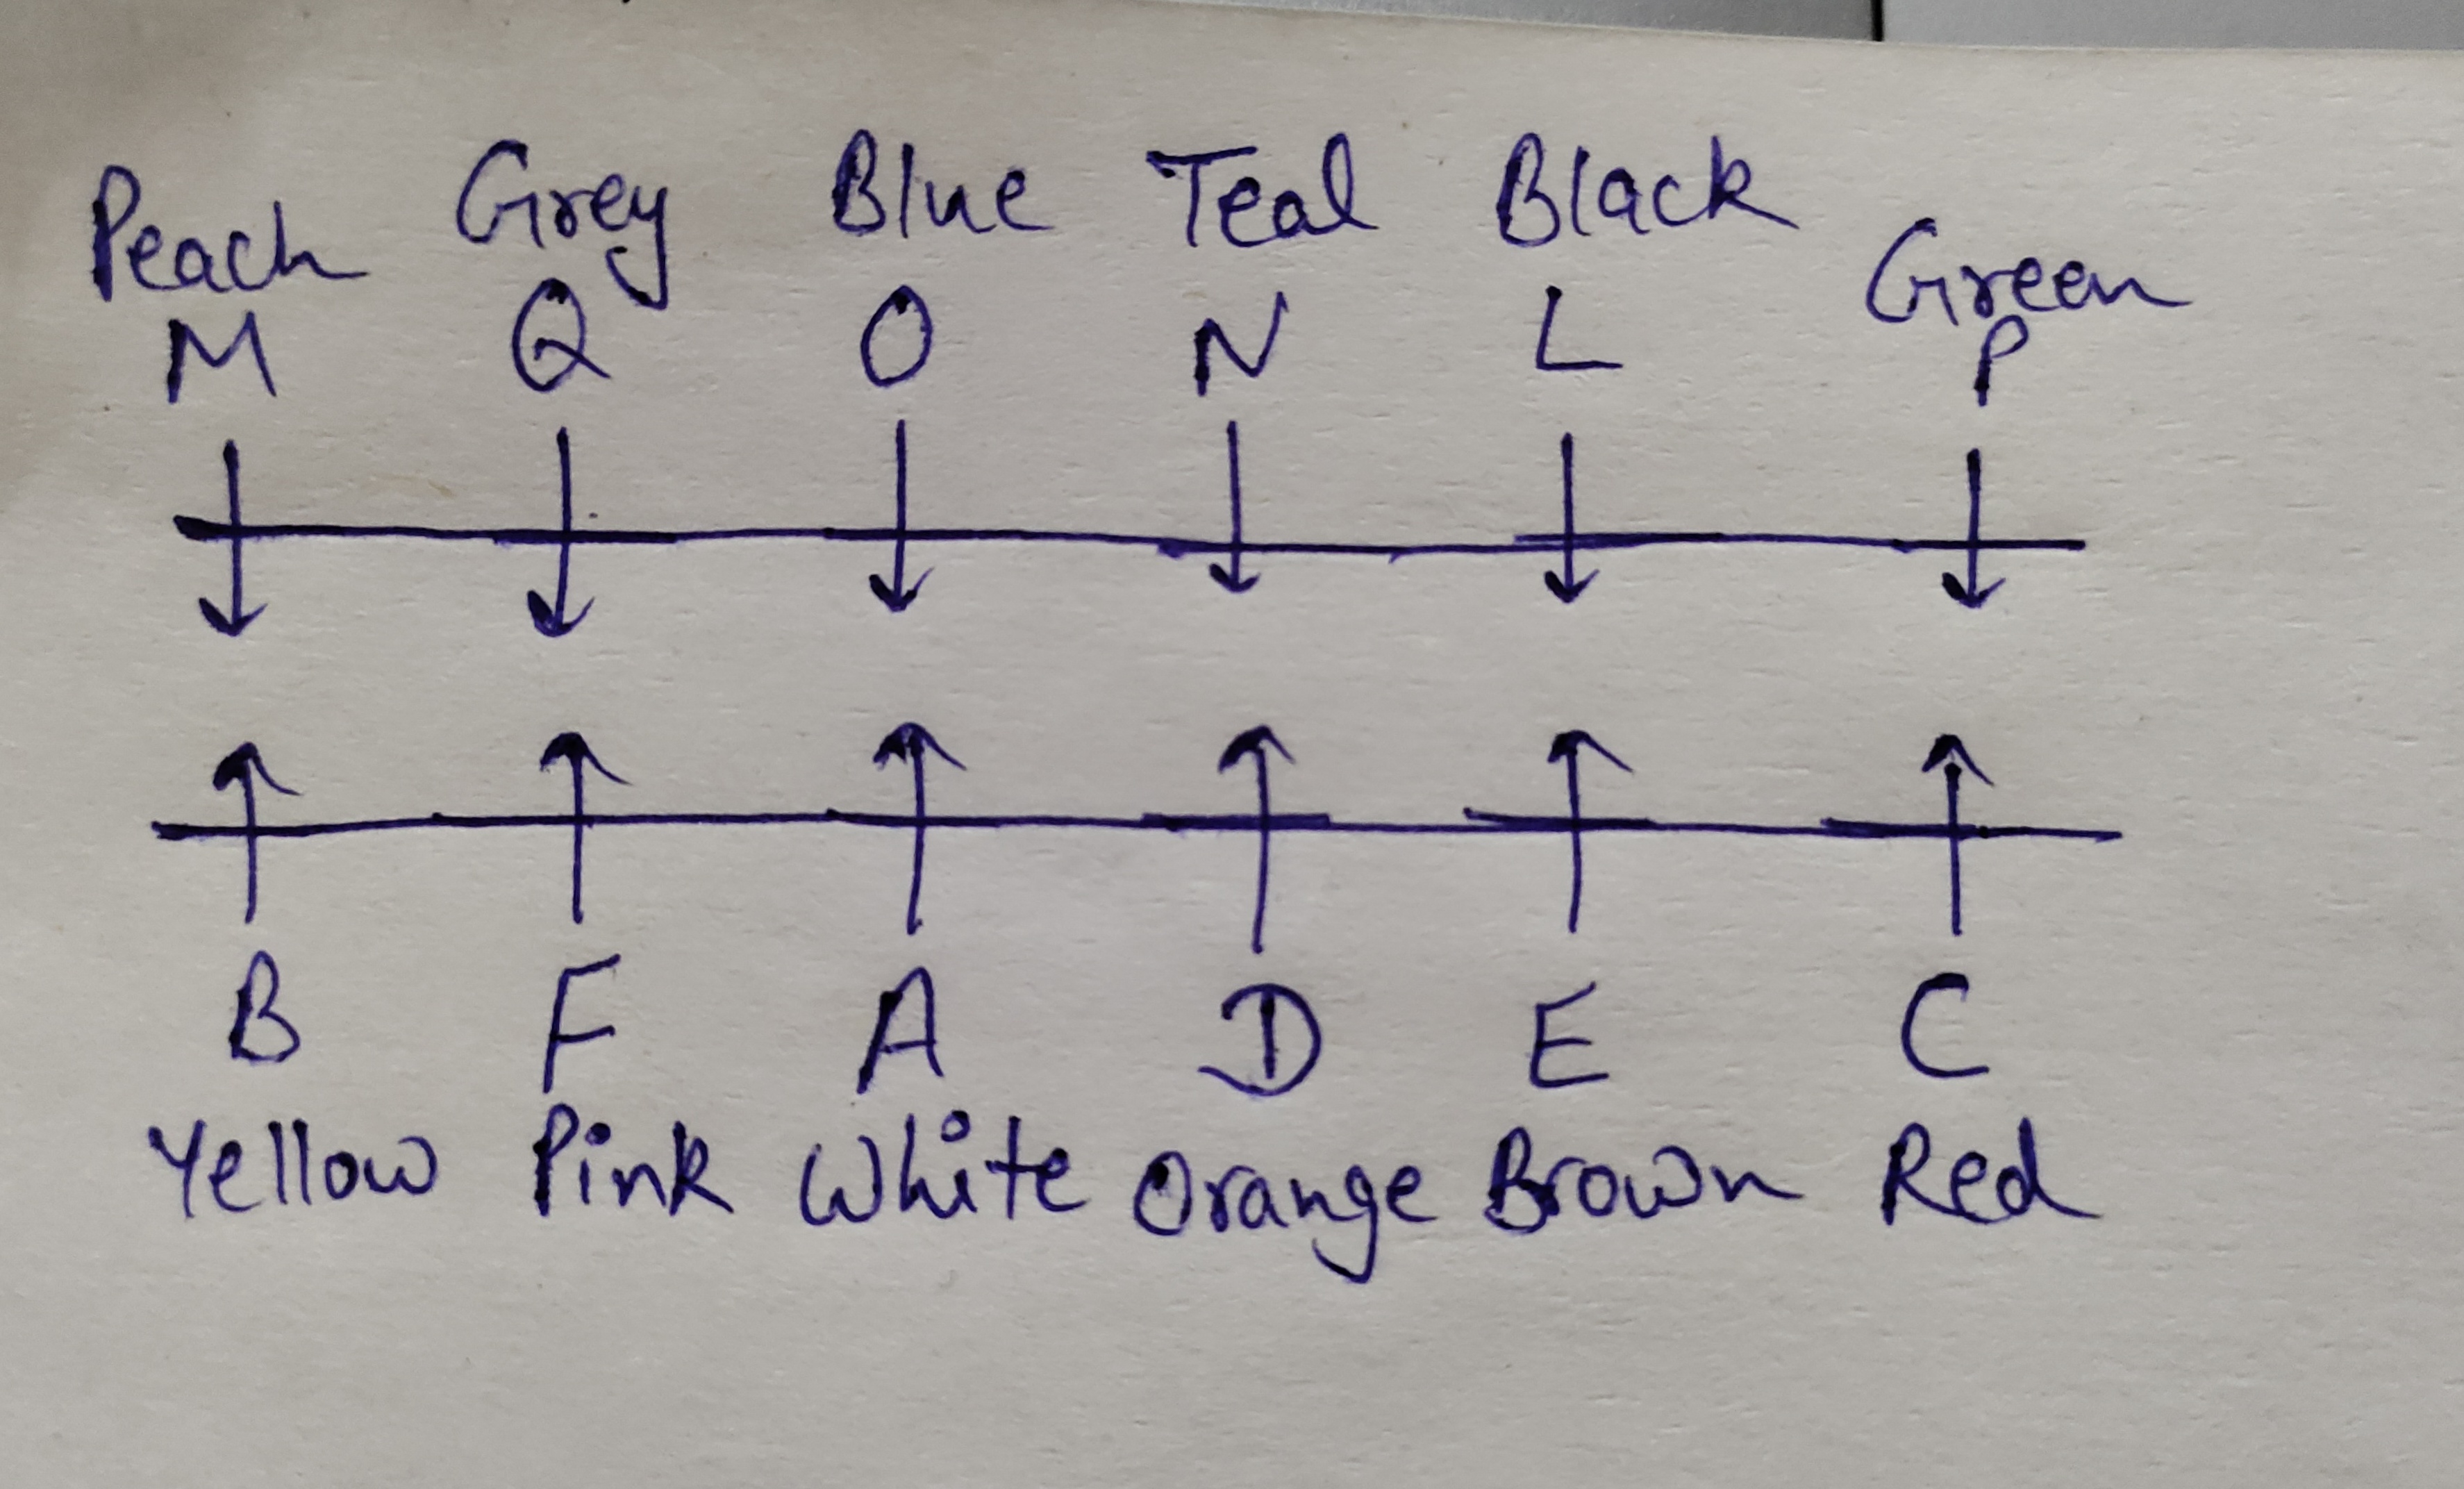 Peach Grey Blue Teal Black Green
M Q O N L P
B F A D E C
Yellow Pink White Orange Brown Red